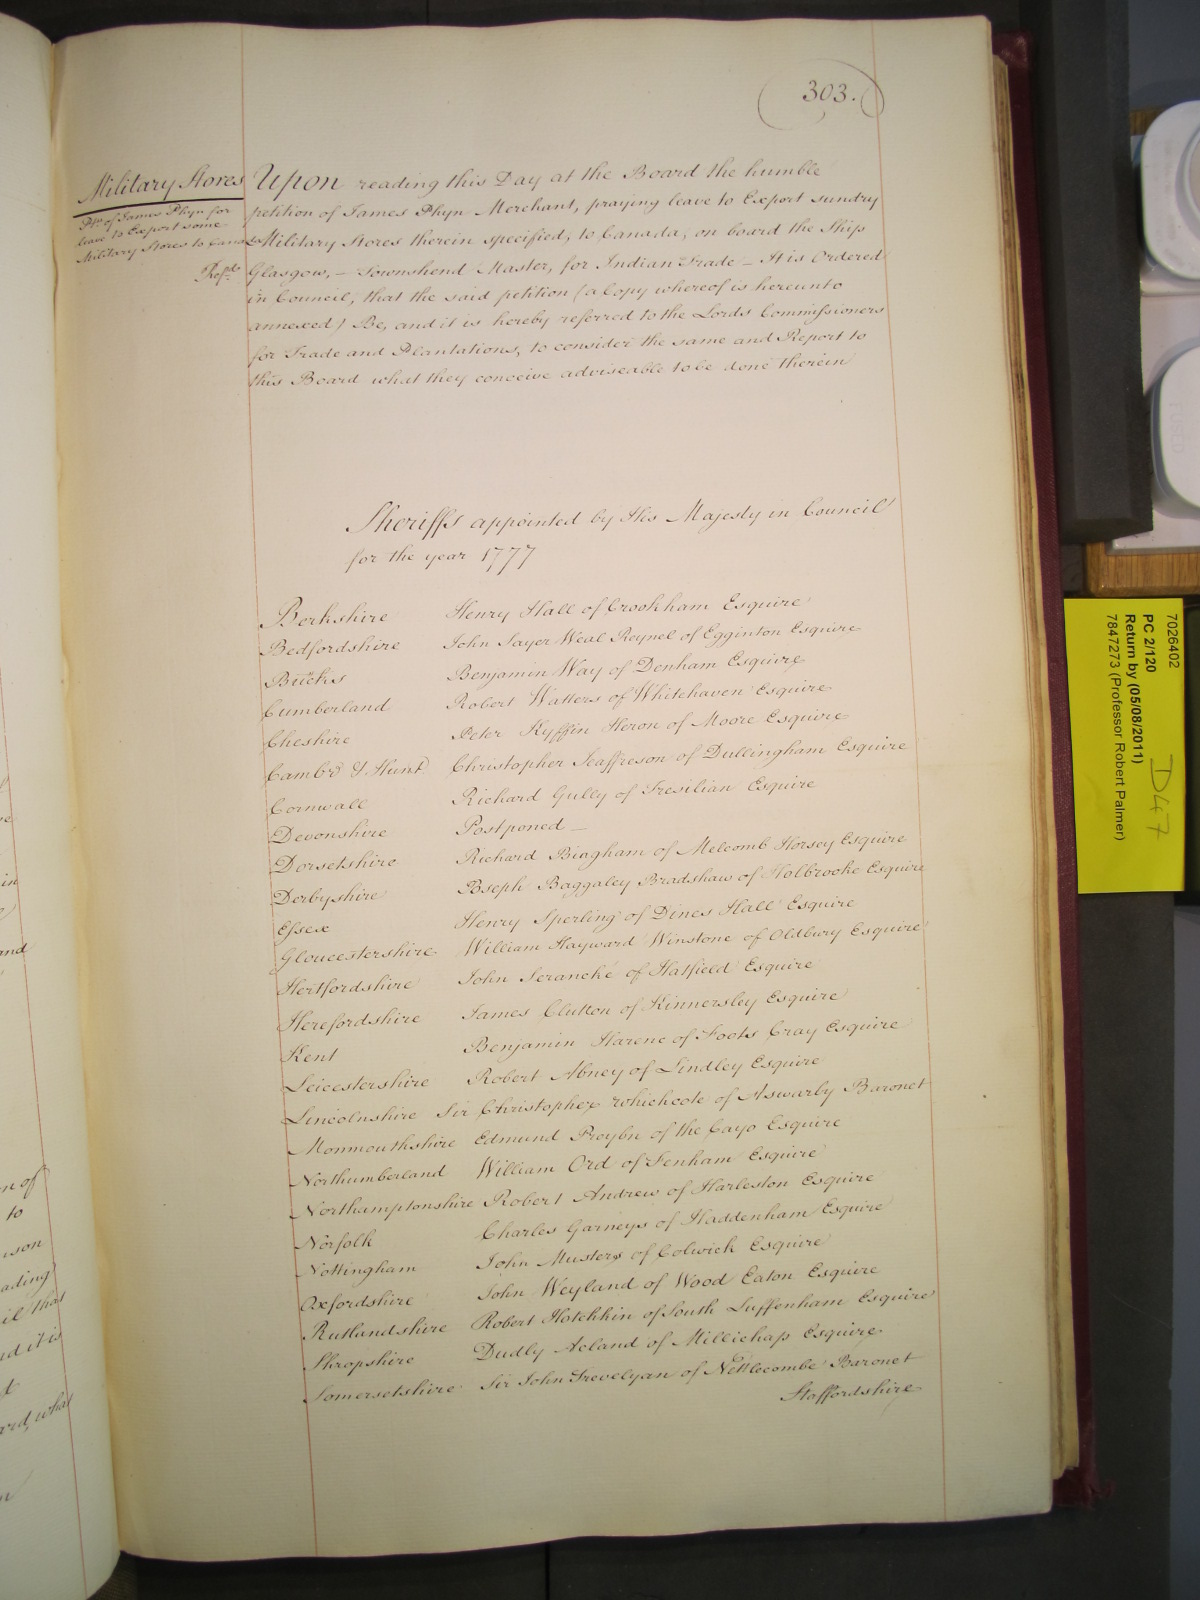 303.
Military Stores
Ptn. of James Phyn for
leave to Export some
Military Stores to Canada
Refd.
Upon reading this Day at the Board the humble
petition of James Phyn Merchant, praying leave to Export sundry
Military Stores therein specified, to Canada, on board the Ship
Glasgow, — Townshend Master, for Indian Trade — It is Ordered
in Council, that the said petition (a Copy whereof is hereunto
annexed) Be, and it is hereby referred to the Lords Commissioners
for Trade and Plantations, to consider the same and Report to
this Board what they conceive adviseable to be done therein
Sheriffs appointed by His Majesty in Council
for the year 1777
Berkshire Henry Hall of Crookham Esquire
Bedfordshire John Sayer Weal Reynel of Egginton Esquire
Bucks Benjamin Way of Denham Esquire
Cumberland Robert Watters of Whitehaven Esquire
Cheshire Peter Kyffin Heron of Moore Esquire
Camb'd & Hunt Christopher Jeaffreson of Dullingham Esquire
Cornwall Richard Gully of Tresilian Esquire
Devonshire Postponed —
Dorsetshire Richard Bingham of Melcomb Horsey Esquire
Derbyshire Joseph Baggaley Bradshaw of Holbrooke Esquire
Essex Henry Sperling of Dines Hall Esquire
Gloucestershire William Hayward Winstone of Oldbury Esquire
Hertfordshire John Seranché of Hatfield Esquire
Herefordshire James Clutton of Kinnersley Esquire
Kent Benjamin Harenc of Foots Cray Esquire
Leicestershire Robert Abney of Lindley Esquire
Lincolnshire Sir Christopher Whichcote of Aswarby Baronet
Monmouthshire Edmund Proybn of the Cayo Esquire
Northumberland William Ord of Fenham Esquire
Northamptonshire Robert Andrew of Harleston Esquire
Norfolk Charles Garneys of Haddenham Esquire
Nottingham John Musters of Colwick Esquire
Oxfordshire John Weyland of Wood Eaton Esquire
Rutlandshire Robert Hotchkin of South Luffenham Esquire
Shropshire Dudly Acland of Millichap Esquire
Somersetshire Sir John Trevelyan of Nettlecombe Baronet
Staffordshire
7026402
PC 2/120
Return by (05/08/2011)
7847273 (Professor Robert Palmer)
D47
in
and
n of
to
ading
il that
nd it is
ord, what